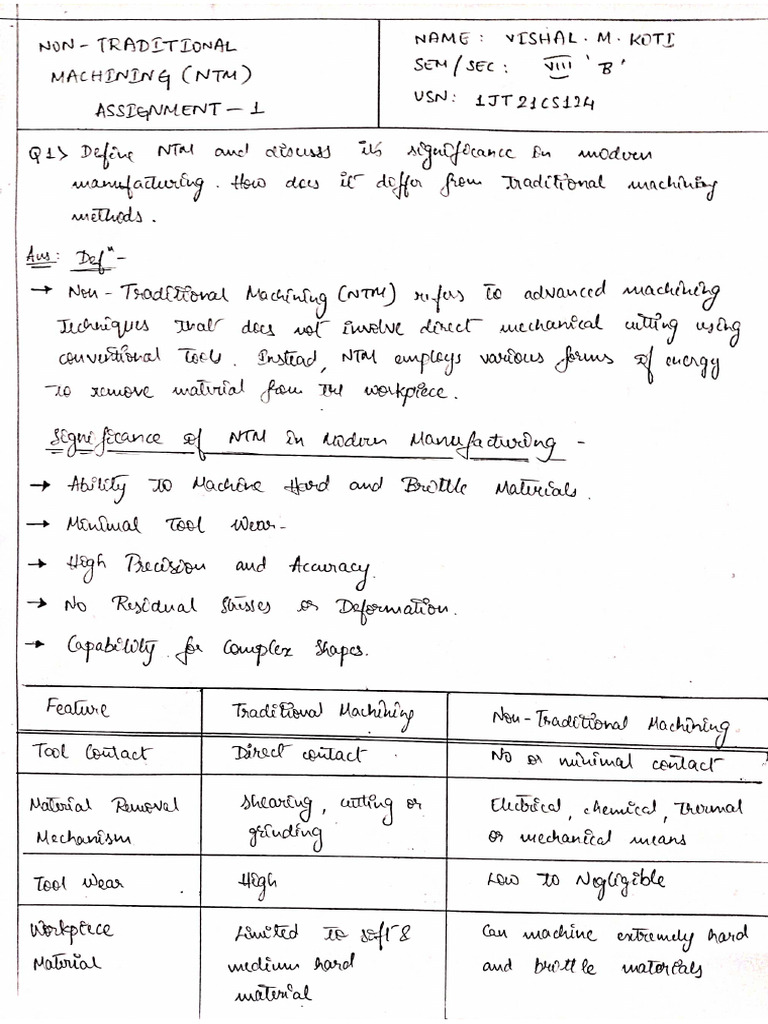 NON-TRADITIONAL
MACHINING (NTM)
ASSIGNMENT-1
NAME: VISHAL. M. KOTI
SEM/SEC: VIII 'B'
USN: 1JT21CS124
Q1> Define NTM and discuss its significance in modern
manufacturing. How does it differ from Traditional machining
methods.
Ans: Defⁿ-
→ Non-Traditional Machining (NTM) refers to advanced machining
techniques that does not involve direct mechanical cutting using
conventional tools. Instead, NTM employs various forms of energy
to remove material from the workpiece.
Significance of NTM in Modern Manufacturing -
→ Ability to Machine Hard and Brittle Materials.
→ Minimal Tool Wear-
→ High Precision and Accuracy.
→ No Residual Stresses or Deformation.
→ Capability for Complex Shapes.
Feature Traditional Machining Non-Traditional Machining
Tool Contact Direct contact No or minimal contact
Material Removal Shearing, cutting or Electrical, chemical, thermal
Mechanism grinding or mechanical means
Tool Wear High Low to Negligible
Workpiece Limited to soft & Can machine extremely hard
Material medium hard and brittle materials
material